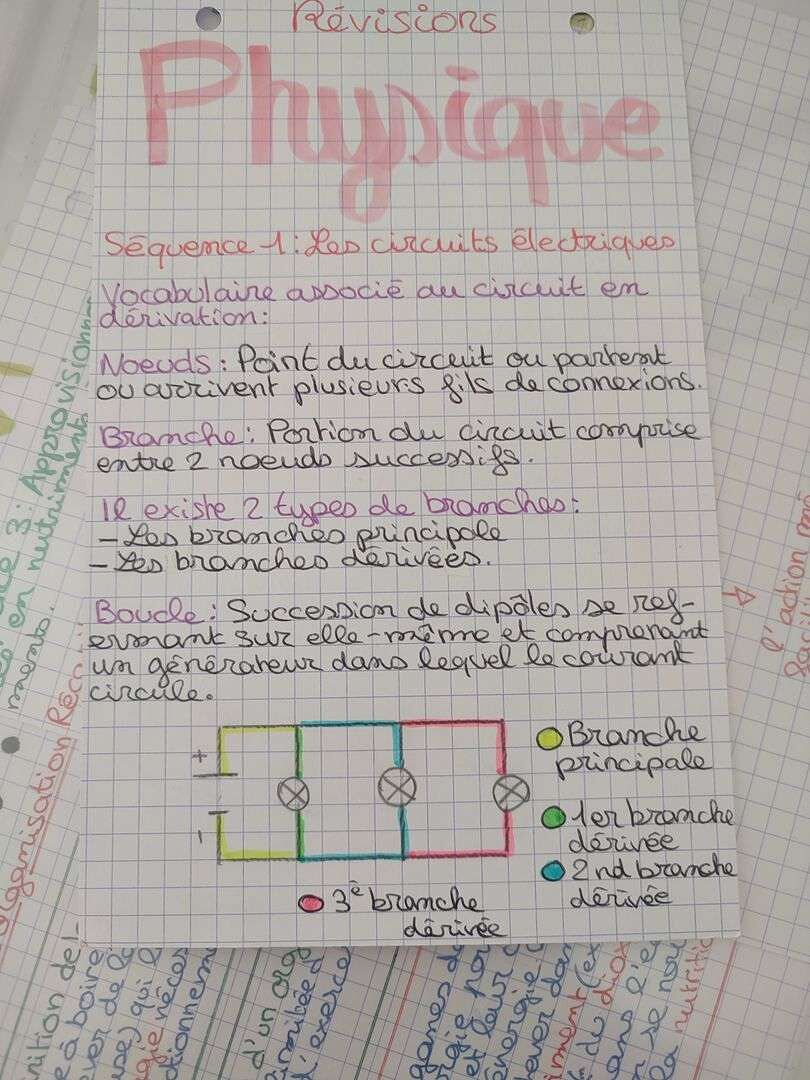 Révisions
Physique
Séquence 1: Les circuits électriques
Vocabulaire associé au circuit en
dérivation:
Noeuds: Point du circuit ou partent
ou arrivent plusieurs fils de connexions.
Branche: Portion du circuit comprise
entre 2 noeuds successifs.
Il existe 2 types de branches:
- Les branches principale
- Les branches dérivées.
Boucle: Succession de dipôles se ref-
ermant sur elle-même et comprenant
un générateur dans lequel le courant
circule.
+
-
Branche
principale
1er branche
dérivée
2nd branche
dérivée
3è branche
dérivée
3: Approvisionn
en nutriment
mento.
Organisation
l'action
d'un org